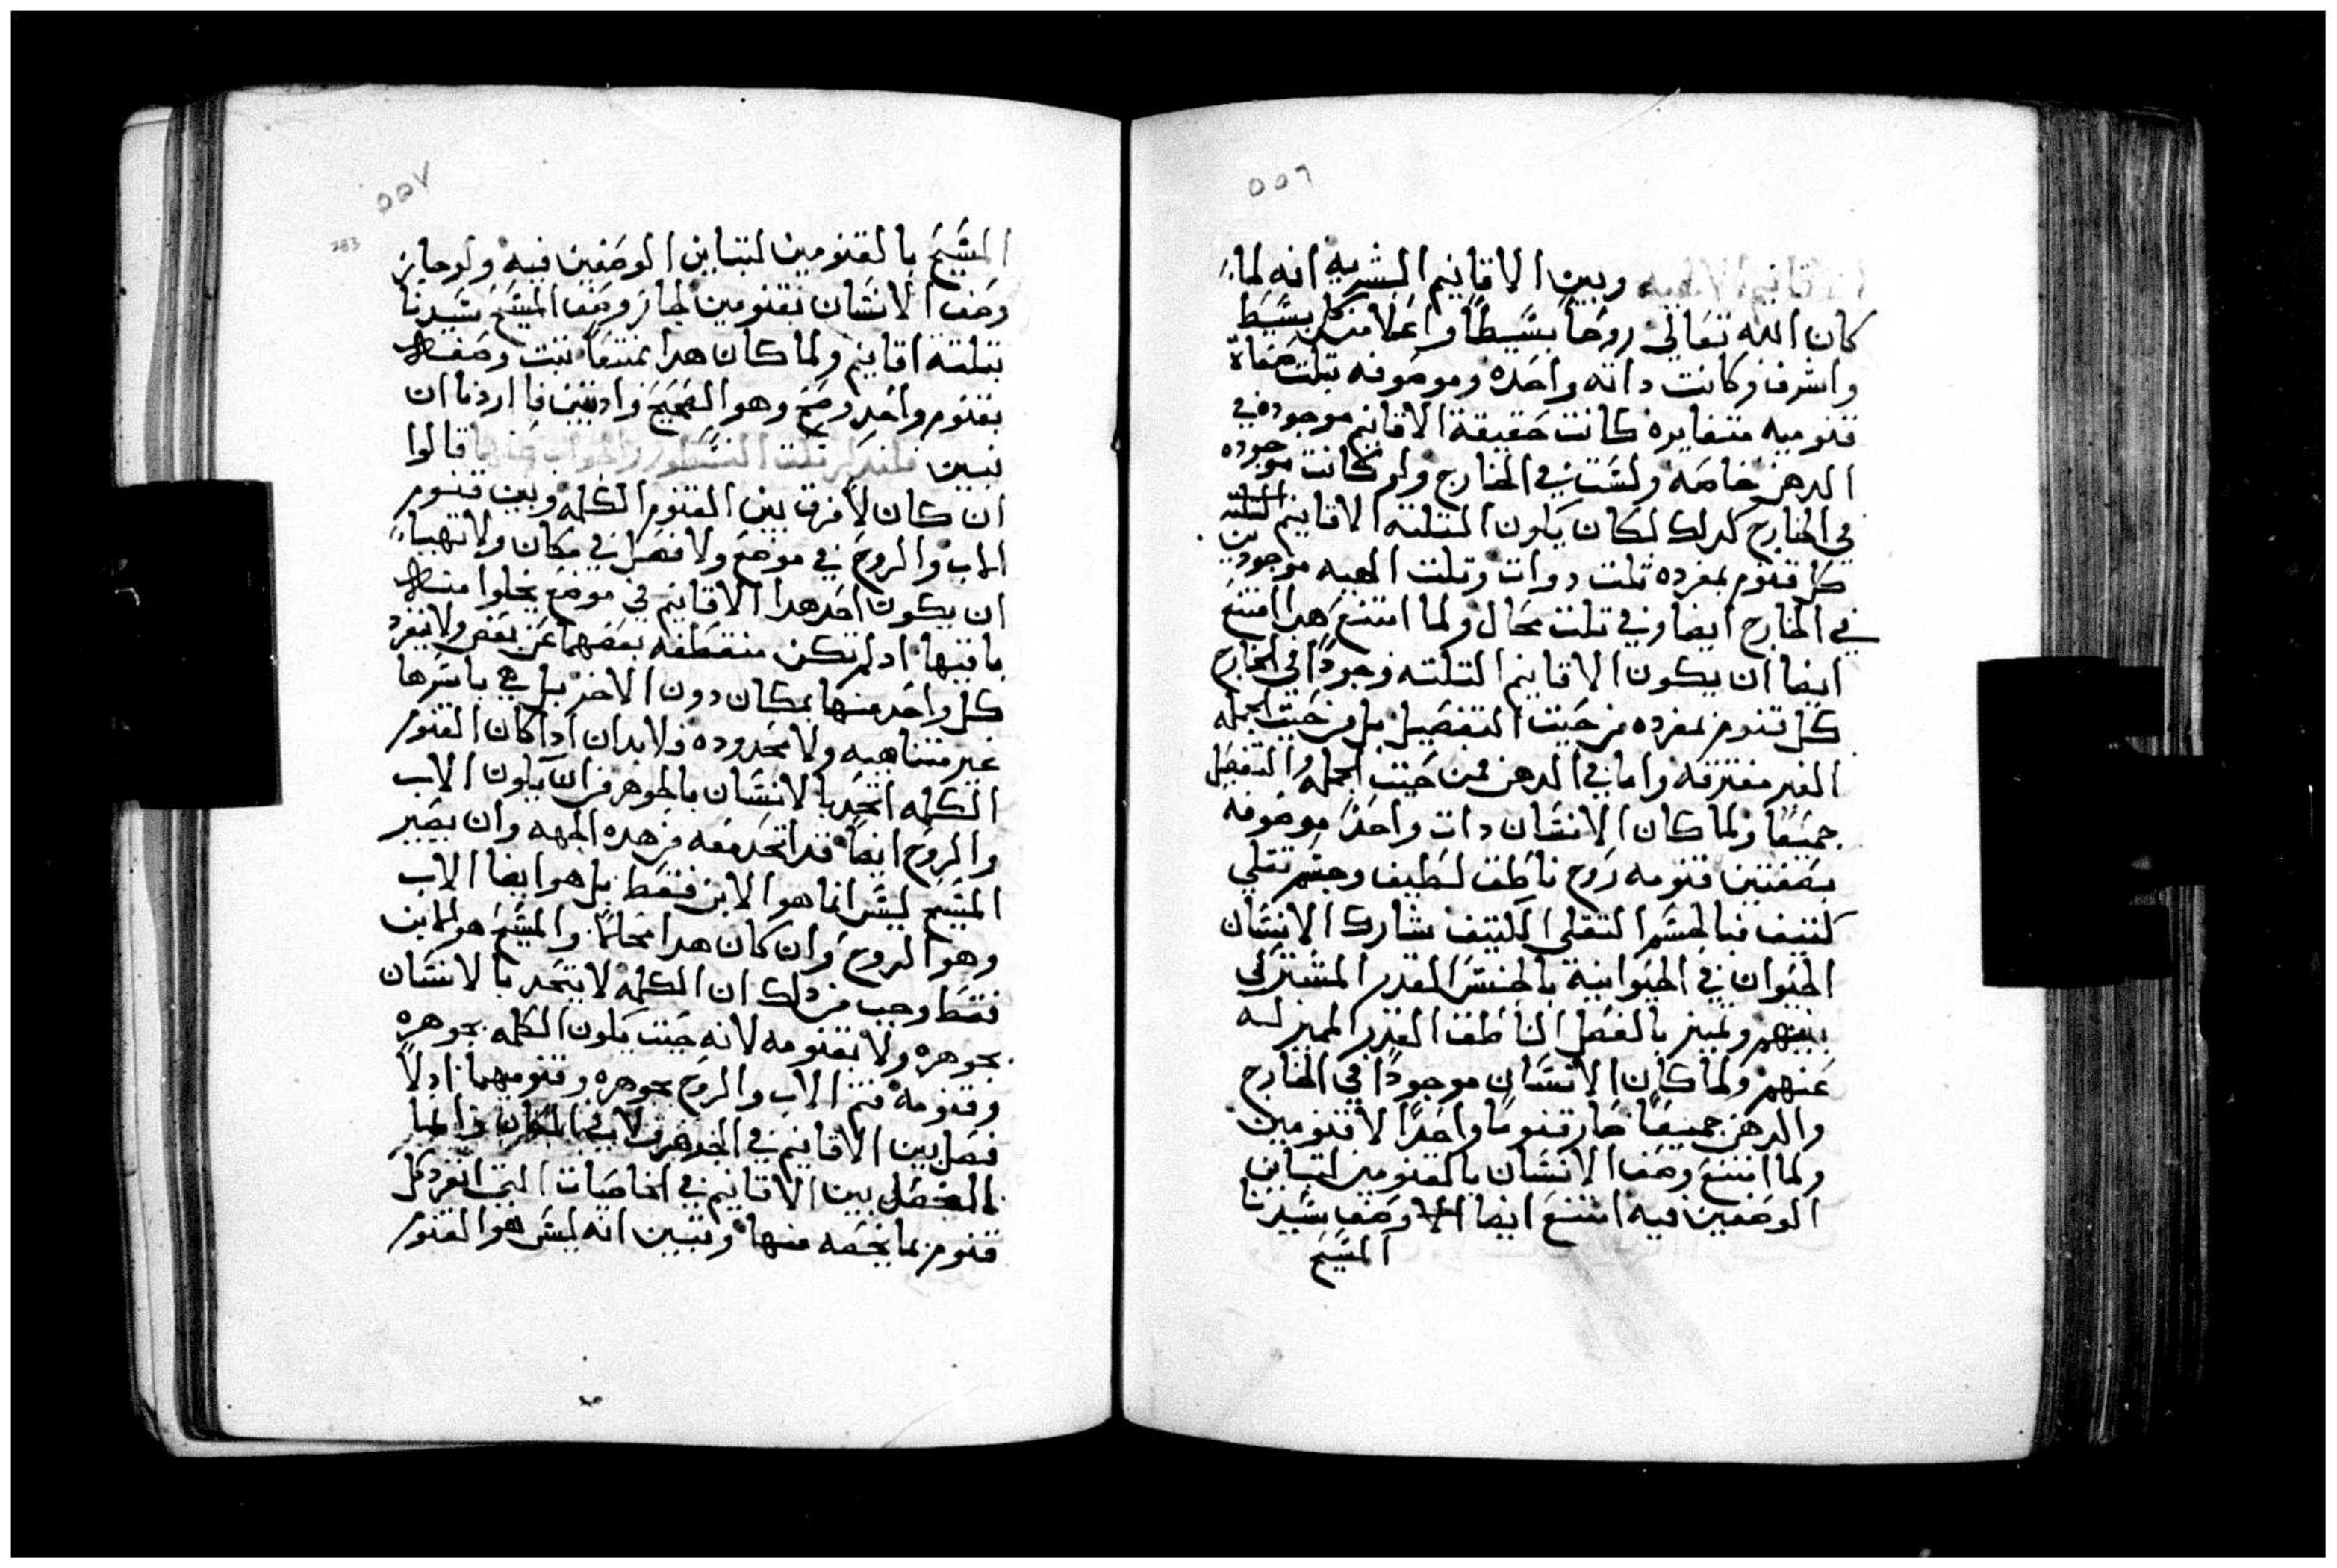 ٥٥٦
الاقانيم الالهيه وبين الاقانيم البشريه انه لما
كان الله تعالي روحاً بسيطاً واعلا من كل بسيط
واشرف وكانت داته واحده وموصوفه بتلت صفاة
قنوميه متغايره كانت حقيقة الاقانيم موجوده في
الدهن خاصه وليست في الخارج ولو كانت موجوده
في الخارج كدلك لكان يكون التلته الاقانيم
كل قنوم بمفرده تلت دوات وتلت الهيه موجودين
في الخارج ايضا وفي تلت محال ولما امتنع هدا امتنع
ايضا ان يكون الاقانيم التلته وجوداً في الخارج
كل قنوم بمفرده من حيت التفصيل بل من حيت الجمله
الغير مفترقه واما في الدهن فمن حيت الجمله والتفصيل
جميعاً ولما كان الانسان دات واحده موصوفه
بصفتين قنوميه روح ناطق لطيف وجسم تقلي
كتيف فبالجسم التقلي الكتيف شارك الانسان
الحيوان في الحيوانية بالجنس القدر المشترك
بينهم وتميز بالفصل الناطق القدر المميز له
عنهم ولما كان الانسان موجوداً في الخارج
والدهن جميعاً صار قنوماً واحداً لا قنومين
ولما امتنع وصف الانسان بالقنومين لتباين
الوصفين فيه امتنع ايضا وصف سيدنا
المسيح
٥٥٧
283
المسيح بالقنومين لتباين الوصفين فيه ولو جاز
وصف الانسان بقنومين لجاز وصف المسيح سيدنا
بتلتة اقانيم ولما كان هدا ممتنعاً تبت وصفه
بقنوم واحد وصح وهو الصحيح واد تبين ما اردنا ان
نبين فلندكر تلت السطور والجواب عنها قالوا
ان كان لا فرق بين القنوم الكلمه وبين قنوم
الاب والروح في موضع ولا فصل في مكان ولا تهيا
ان يكون احد هدا الاقانيم في موضع يخلوا منه
باقيها اد لم تكن منقطعه بعضها عن بعض ولا ينفرد
كل واحد منها بمكان دون الاخر بل هي باسرها
غير متناهيه ولا محدوده فلا بد ان ادا كان القنوم
الكلمه اتحد بالانسان بالجوهر من ان يكون الاب
والروح ايضاً قد اتحد معه من هده الجهه وان يصير
المسيح ليس انما هو الابن فقط بل هو ايضا الاب
وهو الروح وان كان هدا محالاً والمسيح هو الابن
فقط وجب من دلك ان الكلمه لا يتحد بالانسان
بجوهره ولا بقنومه لانه حيت يكون الكلمه بجوهره
وقنومه فتم الاب والروح بجوهره وقنوميهما اد لا
فصل بين الاقانيم في الجوهر ولا في المكان وانما
الفصل بين الاقانيم في الخاصيات التي انفرد كل
قنوم بما يخصه منها وتبين انه ليس هو القنوم